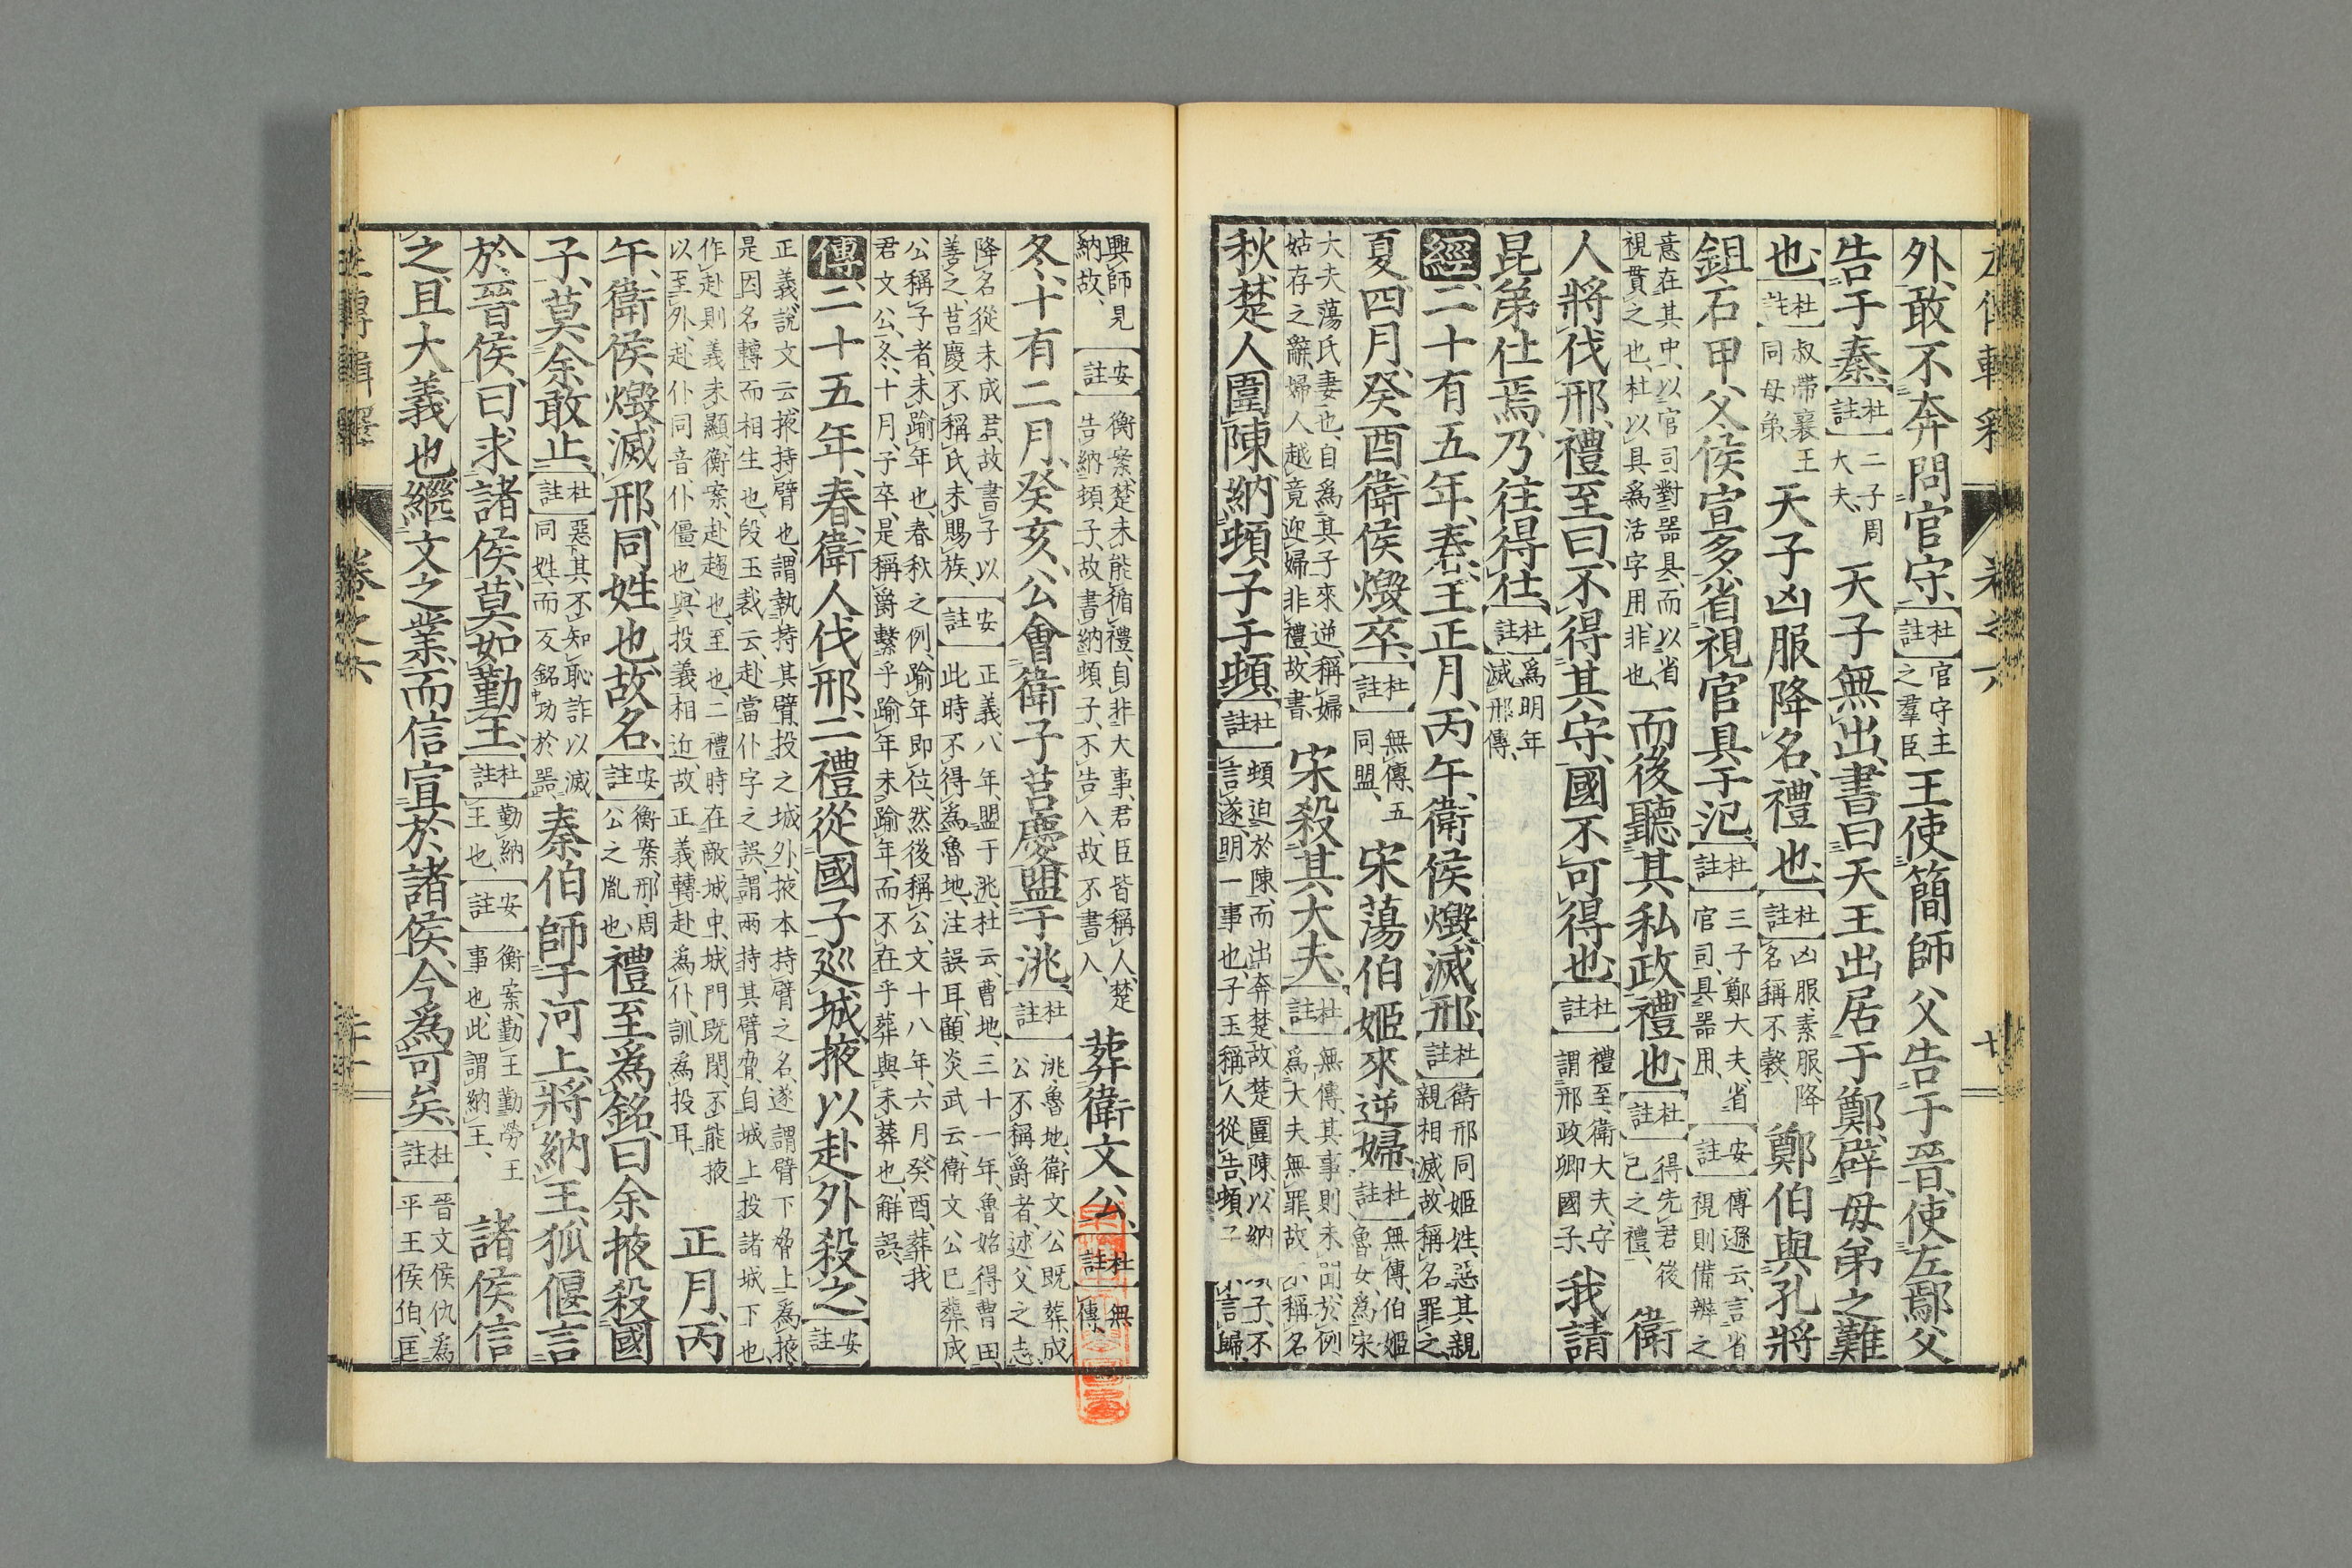 外、敢不奔問官守、【杜註】官守、王之羣臣、王使簡師父告于晉、使左鄢父
告于秦、【杜註】二子、周大夫、天子無出、書曰天王出居于鄭、辟母弟之難
也、【杜註】叔帶、襄王同母弟、天子凶服降名、禮也、【杜註】凶服、素服、降名、稱不穀、鄭伯與孔將
鉏、石甲父、侯宣多、省視官具于氾、【杜註】三子、鄭大夫、省官司、具器用、【安註】傳遜云、言省視則備辨之
意在其中、以官司對器具、而以省視貫之也、杜以具爲活字用、非也、而後聽其私政、禮也、【杜註】得先君後己之禮、衛
人將伐邢、禮至曰、不得其守、國不可得也、【杜註】禮至、衛大夫、守謂邢政卿國子、我請
昆弟仕焉、乃往得仕、【杜註】爲明年滅邢傳、
經、二十有五年、春、王正月、丙午、衛侯燬滅邢、【杜註】衛邢同姬姓、惡其親親相滅、故稱名罪之、
夏、四月、癸酉、衛侯燬卒、【杜註】無傳、五同盟、宋蕩伯姬來逆婦、【杜註】無傳、伯姬魯女、爲宋
大夫蕩氏妻也、自爲其子來逆、稱婦姑存之辭、婦人越竟迎婦非禮、故書、宋殺其大夫、【杜註】無傳、其事則未聞、於例爲大夫無罪、故不稱名
秋、楚人圍陳、納頓子于頓、【杜註】頓迫於陳、而出奔楚、故楚圍陳以納頓子、不言遂、明一事也、子玉稱人、從告、頓子不言歸、
興師見納故、【安註】衡案、楚未能循禮、自非大事、君臣皆稱人、楚告納頓子、故書納頓子、不告入、故不書入、葬衛文公、【杜註】無傳、
冬、十有二月、癸亥、公會衛子莒慶盟于洮、【杜註】洮、魯地、衛文公既葬、成公不稱爵者、述父之志、
降名從未成君、故書子以善之、莒慶不稱氏、未賜族、【安註】正義、八年、盟于洮、杜云、曹地、三十一年、魯始得曹田、此時不得爲魯地、注誤耳、顧炎武云、衛文公已葬、成
公稱子者、未踰年也、春秋之例、踰年即位、然後稱公、文十八年、六月、癸酉、葬我君文公、冬、十月、子卒、是稱爵繫乎踰年未踰年、而不在乎葬與未葬也、解誤、
傳、二十五年、春、衛人伐邢、二禮從國子巡城、掖以赴外、殺之、【安註】
正義、說文云、掖持臂也、謂執持其臂、投之城外、掖本持臂之名、遂謂臂下脅上爲掖、是因名轉而相生也、段玉裁云、赴當仆字之誤、謂兩持其臂脅、自城上投諸城下也、
作赴則義未顯、衡案、赴趨也、至也、二禮時在敵城中、城門既閉、不能掖以至外、赴仆同音、仆僵也、與投義相近、故正義轉赴爲仆、訓爲投耳、正月、丙
午、衛侯燬滅邢、同姓也、故名、【安註】衡案、邢、周公之胤也、禮至爲銘曰、余掖殺國
子、莫余敢止、【杜註】惡其不知恥、詐以滅同姓、而反銘功於器、秦伯師于河上、將納王、狐偃言
於晉侯、曰、求諸侯、莫如勤王、【杜註】勤納王也、【安註】衡案、勤王勤勞王事也、此謂納王、諸侯信
之、且大義也、繼文之業、而信宣於諸侯、今爲可矣、【杜註】晉文侯仇爲平王侯伯、匡